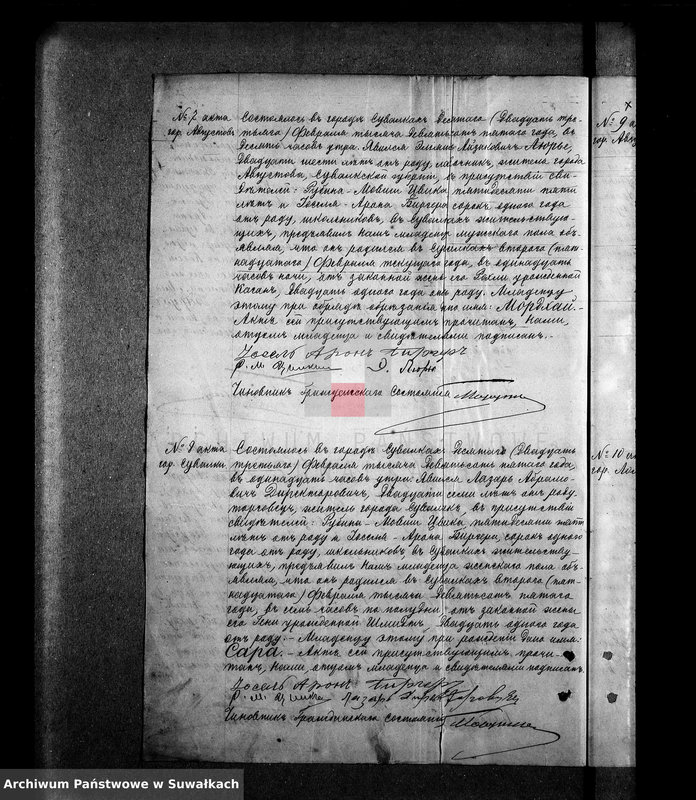 № 7 акта
гор. Августовъ
Состоялось въ городѣ Сувалкахъ Десятаго (Двадцать тре-
тьяго) Февраля тысяча Девятьсотъ пятаго года, въ
Десять часовъ утра. Явился Айзиковичъ
Двадцати шести лѣтъ отъ роду, житель города
Августова, Сувалкской губерніи, въ присутствіи сви-
дѣтелей: Рубина-Мовши Цвика пятидесяти пяти
лѣтъ и Іоселя-Арона Биргера сорокъ одного года
отъ роду, школьниковъ, въ Сувалкахъ жительствую-
щихъ, предъявилъ намъ младенца мужескаго пола объ-
являя, что онъ родился въ Сувалкахъ второго (пят-
надцатаго) Февраля текущаго года, въ одинадцать
часовъ ночи, отъ законной жены его урожденной
Каганъ, Двадцать одного года отъ роду. Младенцу
этому при обрядѣ обрѣзанія дано имя: Мордхай.-
Актъ сей присутствующимъ прочитанъ, Нами,
отцомъ младенца и свидѣтелями подписанъ.-
Іосель Аронъ Биргеръ
Р. М. Цвикъ
Чиновникъ Гражданскаго Состоянія
№ 8 акта
гор. Сувалки
Состоялось въ городѣ Сувалкахъ Десятаго (Двадцать
третьяго) Февраля тысяча Девятьсотъ пятаго года,
въ одинадцать часовъ утра. Явился Лазарь Абрамо-
вичъ Директоровичъ, Двадцати семи лѣтъ отъ роду,
торговецъ, житель города Сувалокъ, въ присутствіи
свидѣтелей: Рубина-Мовши Цвика, пятидесяти пяти
лѣтъ отъ роду и Іоселя-Арона Биргера, сорокъ одного
года отъ роду, школьниковъ въ Сувалкахъ жительству-
ющихъ, предъявилъ намъ младенца женскаго пола объ-
являя, что онъ родился въ Сувалкахъ второго (пят-
надцатаго) Февраля тысяча Девятьсотъ пятаго
года, въ семь часовъ по полудни, отъ законной жены
его Гени урожденной Шмидтъ, Двадцать одного года
отъ роду.- Младенцу этому при рожденіи дано имя:
Сара.- Актъ сей присутствующимъ прочи-
танъ, Нами, отцомъ младенца и свидѣтелями подписанъ.
Іосель Аронъ Биргеръ
Р. М. Цвикъ Лазарь Директоровичъ
Чиновникъ Гражданскаго состоянія
№ 9 а
гор. Авг
№ 10 а
гор.
Archiwum Państwowe w Suwałkach